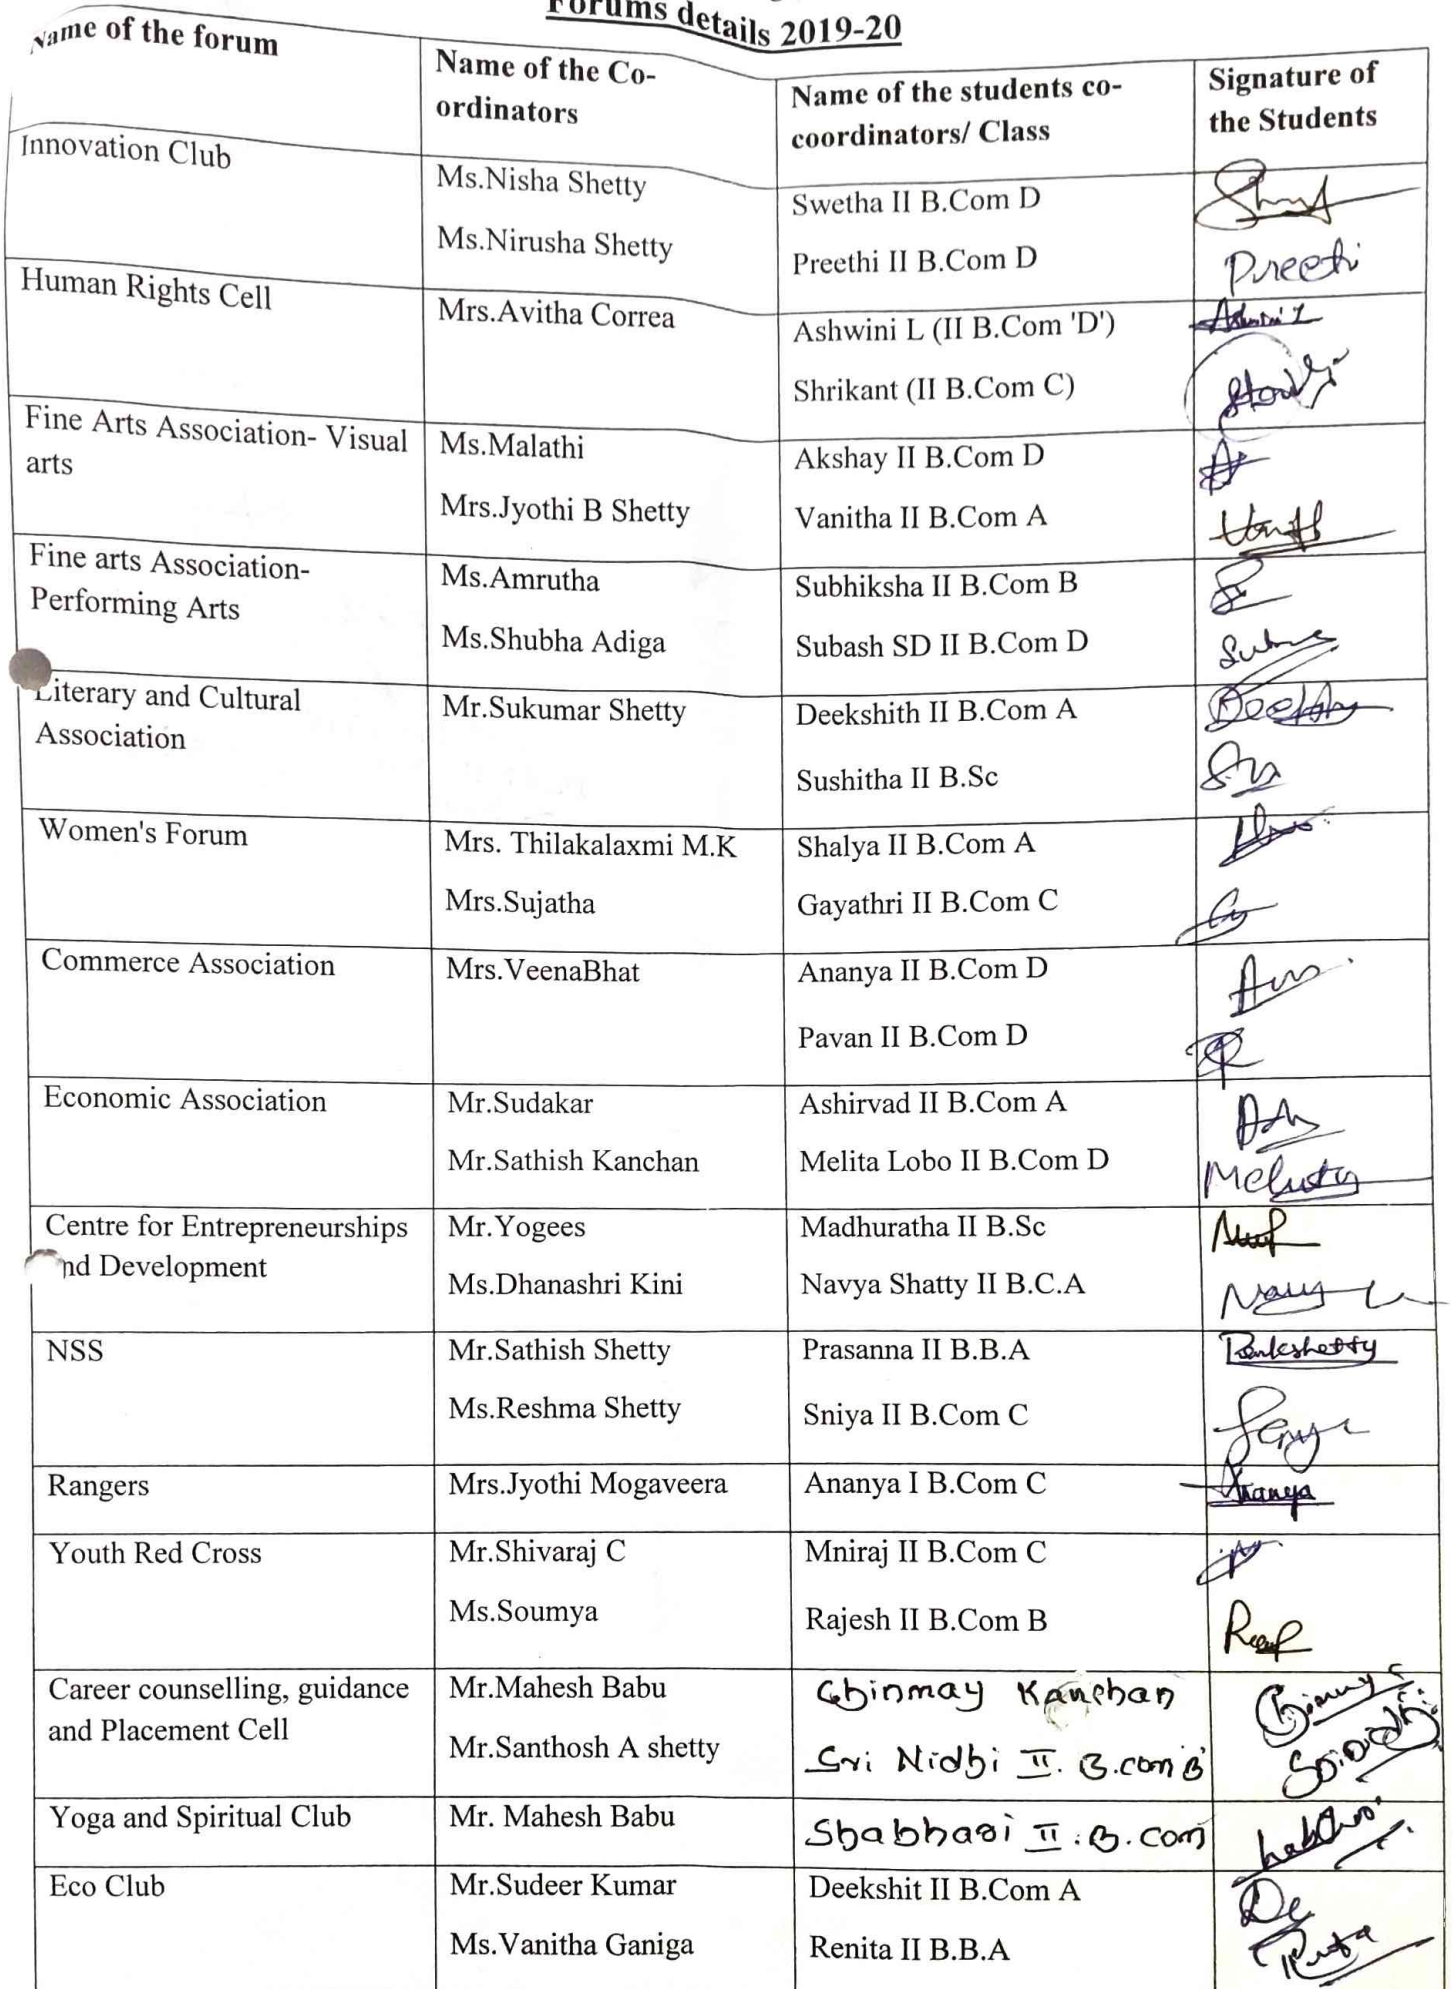 Forums details 2019-20
Name of the forum
Name of the Co-
ordinators
Name of the students co-
coordinators/ Class
Signature of
the Students
Innovation Club
Ms.Nisha Shetty
Ms.Nirusha Shetty
Swetha II B.Com D
Preethi II B.Com D
Preethi
Human Rights Cell
Mrs.Avitha Correa
Ashwini L (II B.Com 'D')
Shrikant (II B.Com C)
Ashwini L
Fine Arts Association- Visual
arts
Ms.Malathi
Mrs.Jyothi B Shetty
Akshay II B.Com D
Vanitha II B.Com A
Fine arts Association-
Performing Arts
Ms.Amrutha
Ms.Shubha Adiga
Subhiksha II B.Com B
Subash SD II B.Com D
Literary and Cultural
Association
Mr.Sukumar Shetty
Deekshith II B.Com A
Sushitha II B.Sc
Women's Forum
Mrs. Thilakalaxmi M.K
Mrs.Sujatha
Shalya II B.Com A
Gayathri II B.Com C
Commerce Association
Mrs.VeenaBhat
Ananya II B.Com D
Pavan II B.Com D
Economic Association
Mr.Sudakar
Mr.Sathish Kanchan
Ashirvad II B.Com A
Melita Lobo II B.Com D
Centre for Entrepreneurships
and Development
Mr.Yogees
Ms.Dhanashri Kini
Madhuratha II B.Sc
Navya Shatty II B.C.A
NSS
Mr.Sathish Shetty
Ms.Reshma Shetty
Prasanna II B.B.A
Sniya II B.Com C
Rangers
Mrs.Jyothi Mogaveera
Ananya I B.Com C
Ananya
Youth Red Cross
Mr.Shivaraj C
Ms.Soumya
Mniraj II B.Com C
Rajesh II B.Com B
Career counselling, guidance
and Placement Cell
Mr.Mahesh Babu
Mr.Santhosh A shetty
Chinmay Kanchan
Sri Nidhi II. B.com 'B'
Yoga and Spiritual Club
Mr. Mahesh Babu
Shabhari II. B. com
Eco Club
Mr.Sudeer Kumar
Ms.Vanitha Ganiga
Deekshit II B.Com A
Renita II B.B.A